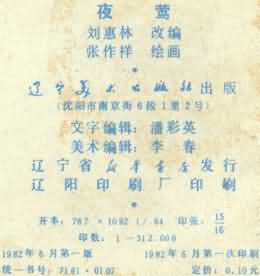 夜莺
刘惠林 改编
张作祥 绘画
辽宁美术出版社出版
(沈阳市南京街6段1里2号)
文字编辑：潘彩英
美术编辑：李 春
辽宁省新华书店发行
辽阳印刷厂印刷
开本：787×1092 1/64 印张：15/16
印数：1—312,000
1982年6月第一版 1982年6月第一次印刷
统一书号：7161·0107 定价：0.10元